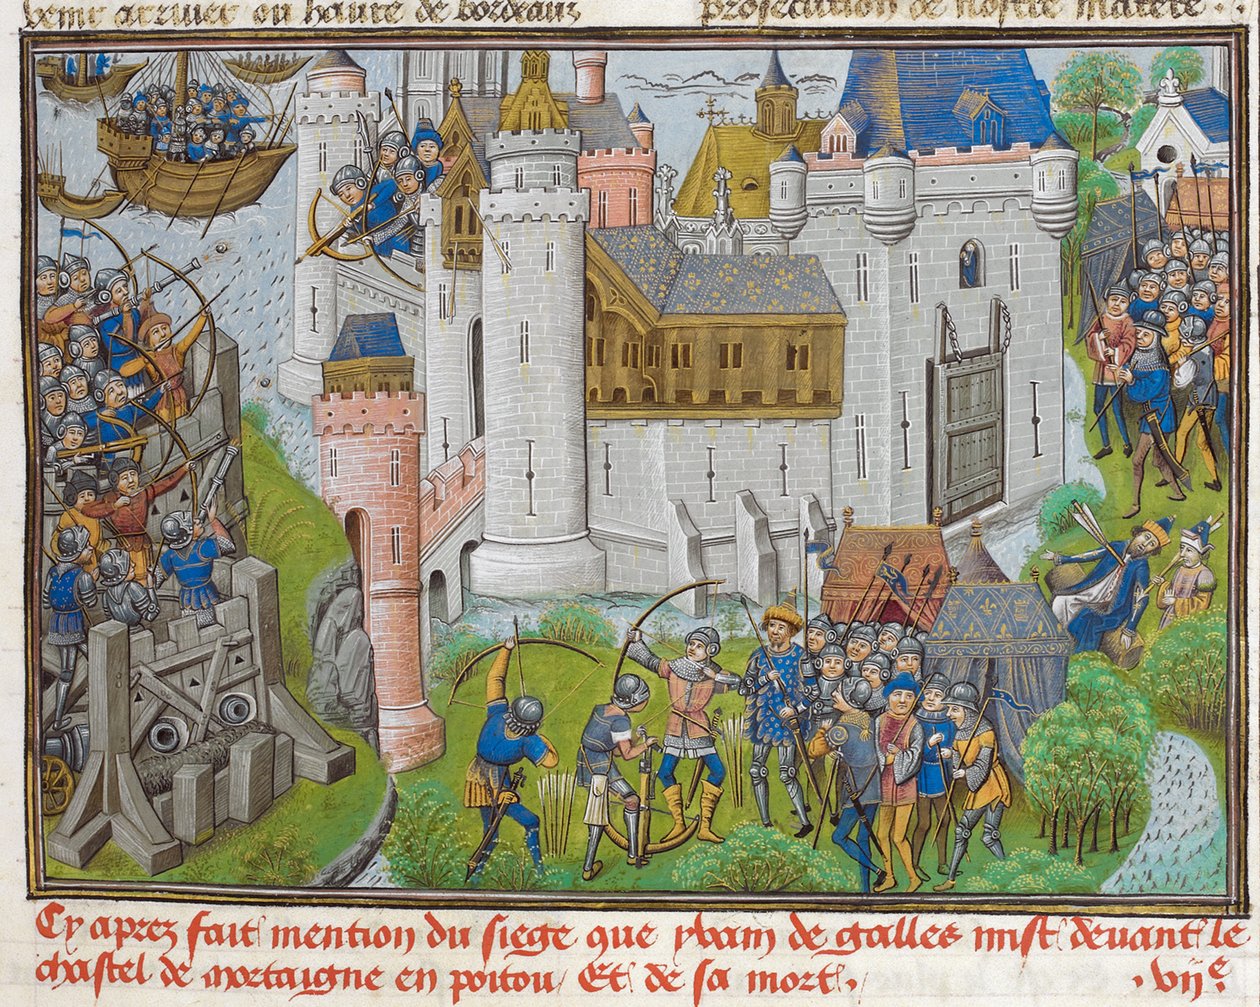 venir arriver ou havre de bordeaux
prosecution de nostre matere
Cy aprez fait mention du siege que yvain de galles mist devant le
chastel de mortaigne en poitou / Et de sa mort . vije